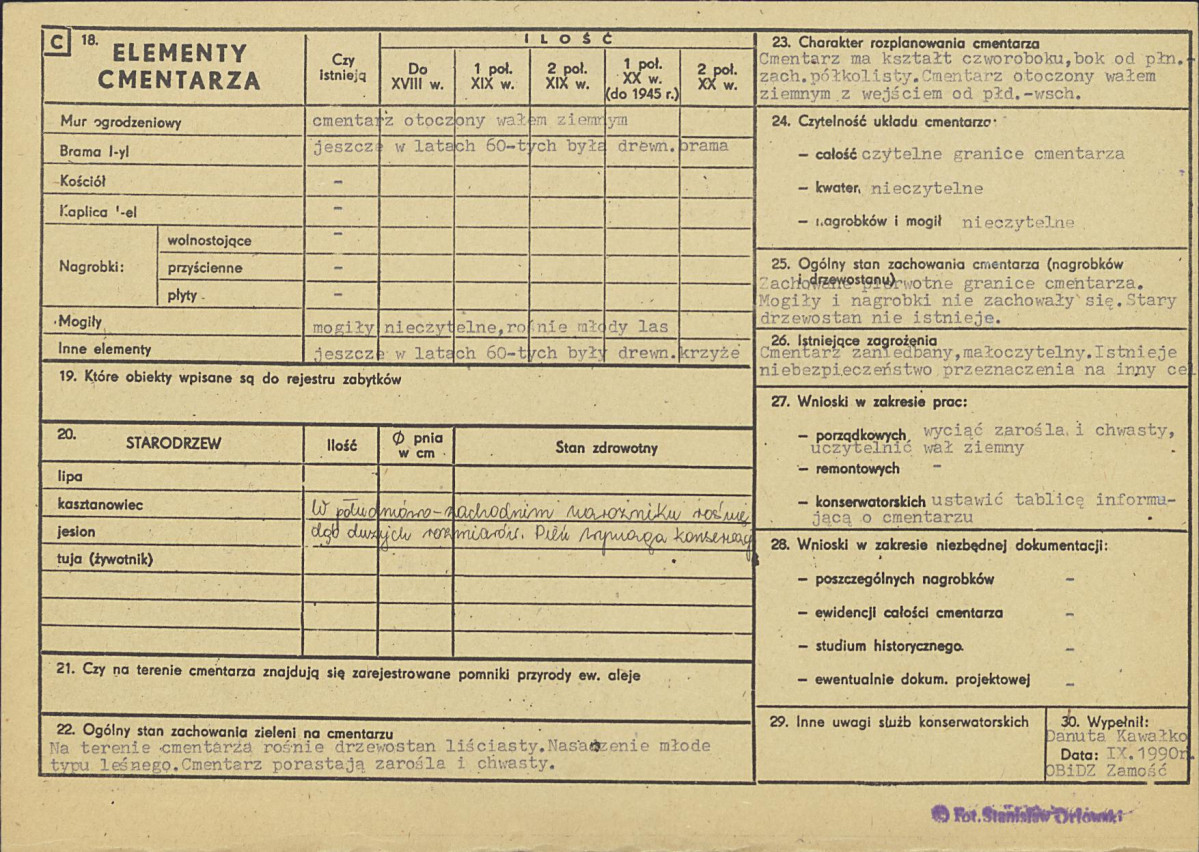 C 18. ELEMENTY CMENTARZA
Czy istnieją
ILOŚĆ
Do XVIII w.
1 poł. XIX w.
2 poł. XIX w.
1 poł. XX w. (do 1945 r.)
2 poł. XX w.
Mur ogrodzeniowy cmentarz otoczony wałem ziemnym
Brama I-yl jeszcze w latach 60-tych była drewn.brama
Kościół -
Kaplica '-el -
Nagrobki:
wolnostojące -
przyścienne -
płyty -
Mogiły mogiły nieczytelne,rośnie młody las
Inne elementy jeszcze w latach 60-tych były drewn.krzyże
19. Które obiekty wpisane są do rejestru zabytków
20. STARODRZEW
Ilość
Ø pnia w cm
Stan zdrowotny
lipa
kasztanowiec W południowo-zachodnim narożniku rośnie
jesion dąb dużych rozmiarów. Pień wymaga konserwacji
tuja (żywotnik)
21. Czy na terenie cmentarza znajdują się zarejestrowane pomniki przyrody ew. aleje
22. Ogólny stan zachowania zieleni na cmentarzu
Na terenie cmentarza rośnie drzewostan liściasty.Nasadzenie młode
typu leśnego.Cmentarz porastają zarośla i chwasty.
23. Charakter rozplanowania cmentarza
Cmentarz ma kształt czworoboku,bok od płn.-
zach.półkolisty.Cmentarz otoczony wałem
ziemnym z wejściem od płd.-wsch.
24. Czytelność układu cmentarza·
- całość czytelne granice cmentarza
- kwater, nieczytelne
- nagrobków i mogił nieczytelne
25. Ogólny stan zachowania cmentarza (nagrobków
i drzewostanu)
Zachowane pierwotne granice cmentarza.
Mogiły i nagrobki nie zachowały się.Stary
drzewostan nie istnieje.
26. Istniejące zagrożenia
Cmentarz zaniedbany,małoczytelny.Istnieje
niebezpieczeństwo przeznaczenia na inny cel
27. Wnioski w zakresie prac:
- porządkowych wyciąć zarośla i chwasty,
uczytelnić wał ziemny
- remontowych -
- konserwatorskich ustawić tablicę informu-
jącą o cmentarzu
28. Wnioski w zakresie niezbędnej dokumentacji:
- poszczególnych nagrobków -
- ewidencji całości cmentarza -
- studium historycznego. -
- ewentualnie dokum. projektowej -
29. Inne uwagi służb konserwatorskich
30. Wypełnił:
Danuta Kawałko
Data: IX.1990r.
OBiDZ Zamość
© Fot.Stanisław Orłowski